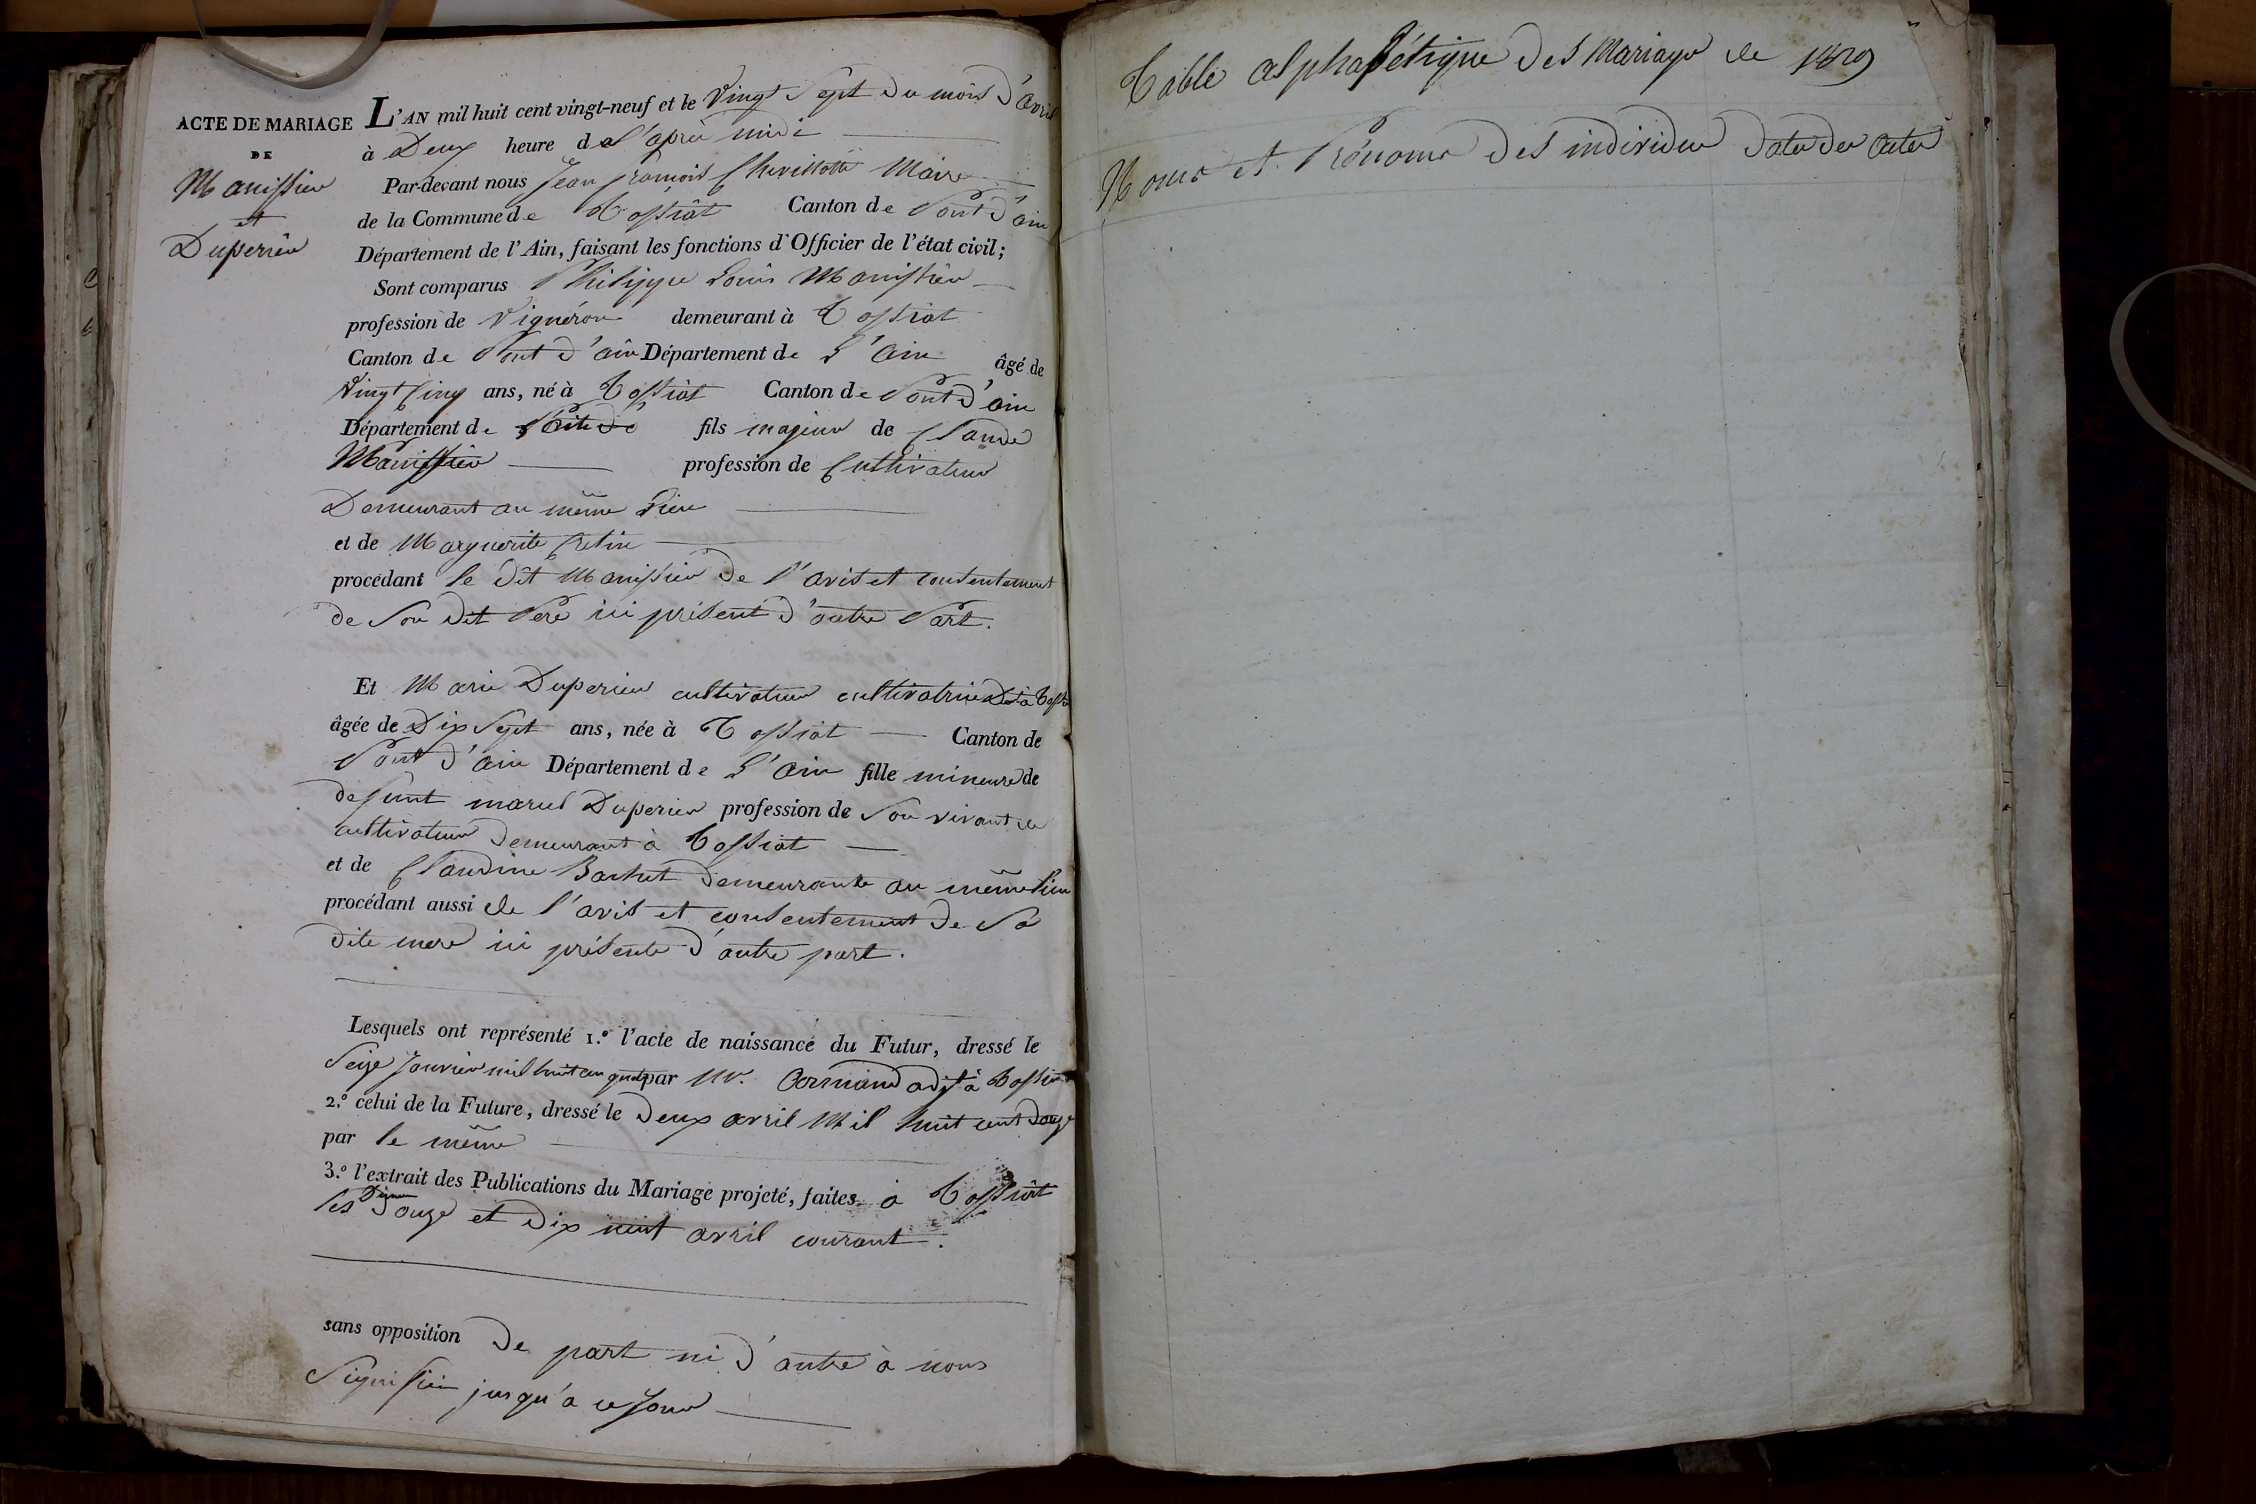 ACTE DE MARIAGE
DE
Manissier
et
Duperrier
L'AN mil huit cent vingt-neuf et le Vingt Sept du mois d'avril
à Deux heure de l'après midi
Par-devant nous Jean françois Chevillotte Maire
de la Commune de Tossiat Canton de Pont d'ain
Département de l'Ain, faisant les fonctions d'Officier de l'état civil;
Sont comparus Philippe Louis Manissier
profession de Vignéron demeurant à Tossiat
Canton de Pont d'ain Département de L'ain âgé de
Vingt Cinq ans, né à Tossiat Canton de Pont d'ain
Département de fils majeur de Claude
Manissier profession de Cultivateur
Demeurant au même Lieu
et de Marguerite Cretin
procédant le dit Manissier de l'avis et consentement
de Son dit Pere ici présent d'autre Part.
Et Marie Duperier cultivateur cultivatrice Dt à Tossiat
âgée de Dix Sept ans, née à Tossiat Canton de
Pont d'ain Département de L'ain fille mineure de
defunt marcel Duperier profession de Son vivant de
cultivateur demeurant à Tossiat
et de Claudine Bachet demeurante au même lieu
procédant aussi de l'avis et consentement de Sa
dite mere ici présente d'autre part.
Lesquels ont représenté 1.º l'acte de naissance du Futur, dressé le
Seize Janvier mil huit cen quat par Mr. Armand adjt à Tossiat
2.º celui de la Future, dressé le Deux avril Mil huit cent douze
par le même
3.º l'extrait des Publications du Mariage projeté, faites à Tossiat
les douze et dix neuf avril courant.
sans opposition de part ni d'autre à nous
Signifiée jusqu'à ce Jour
Table alphabétique des Mariage de 1829
Noms et Prénoms des individus Dates des Actes